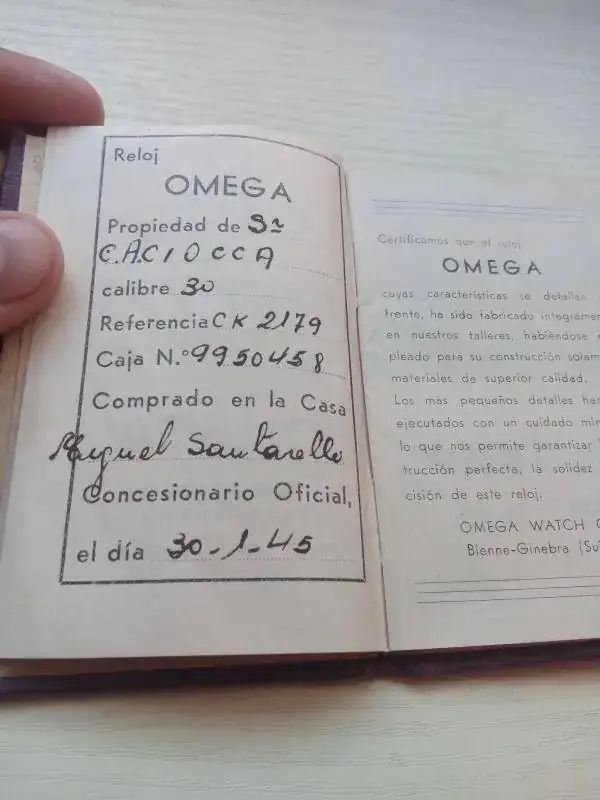 Reloj
OMEGA
Propiedad de Sr
C.A.CIOCCA
calibre 30
Referencia CK 2179
Caja N.º 9950458
Comprado en la Casa
Miguel Santarelli
Concesionario Oficial,
el día 30-1-45
Certificamos que el reloj
OMEGA
cuyas características se detallan
frente, ha sido fabricado integramen
en nuestros talleres, habiéndose
pleado para su construcción solam
materiales de superior calidad.
Los más pequeños detalles han
ejecutados con un cuidado min
lo que nos permite garantizar
trucción perfecta, la solidez
cisión de este reloj.
OMEGA WATCH C
Bienne-Ginebra (Sui